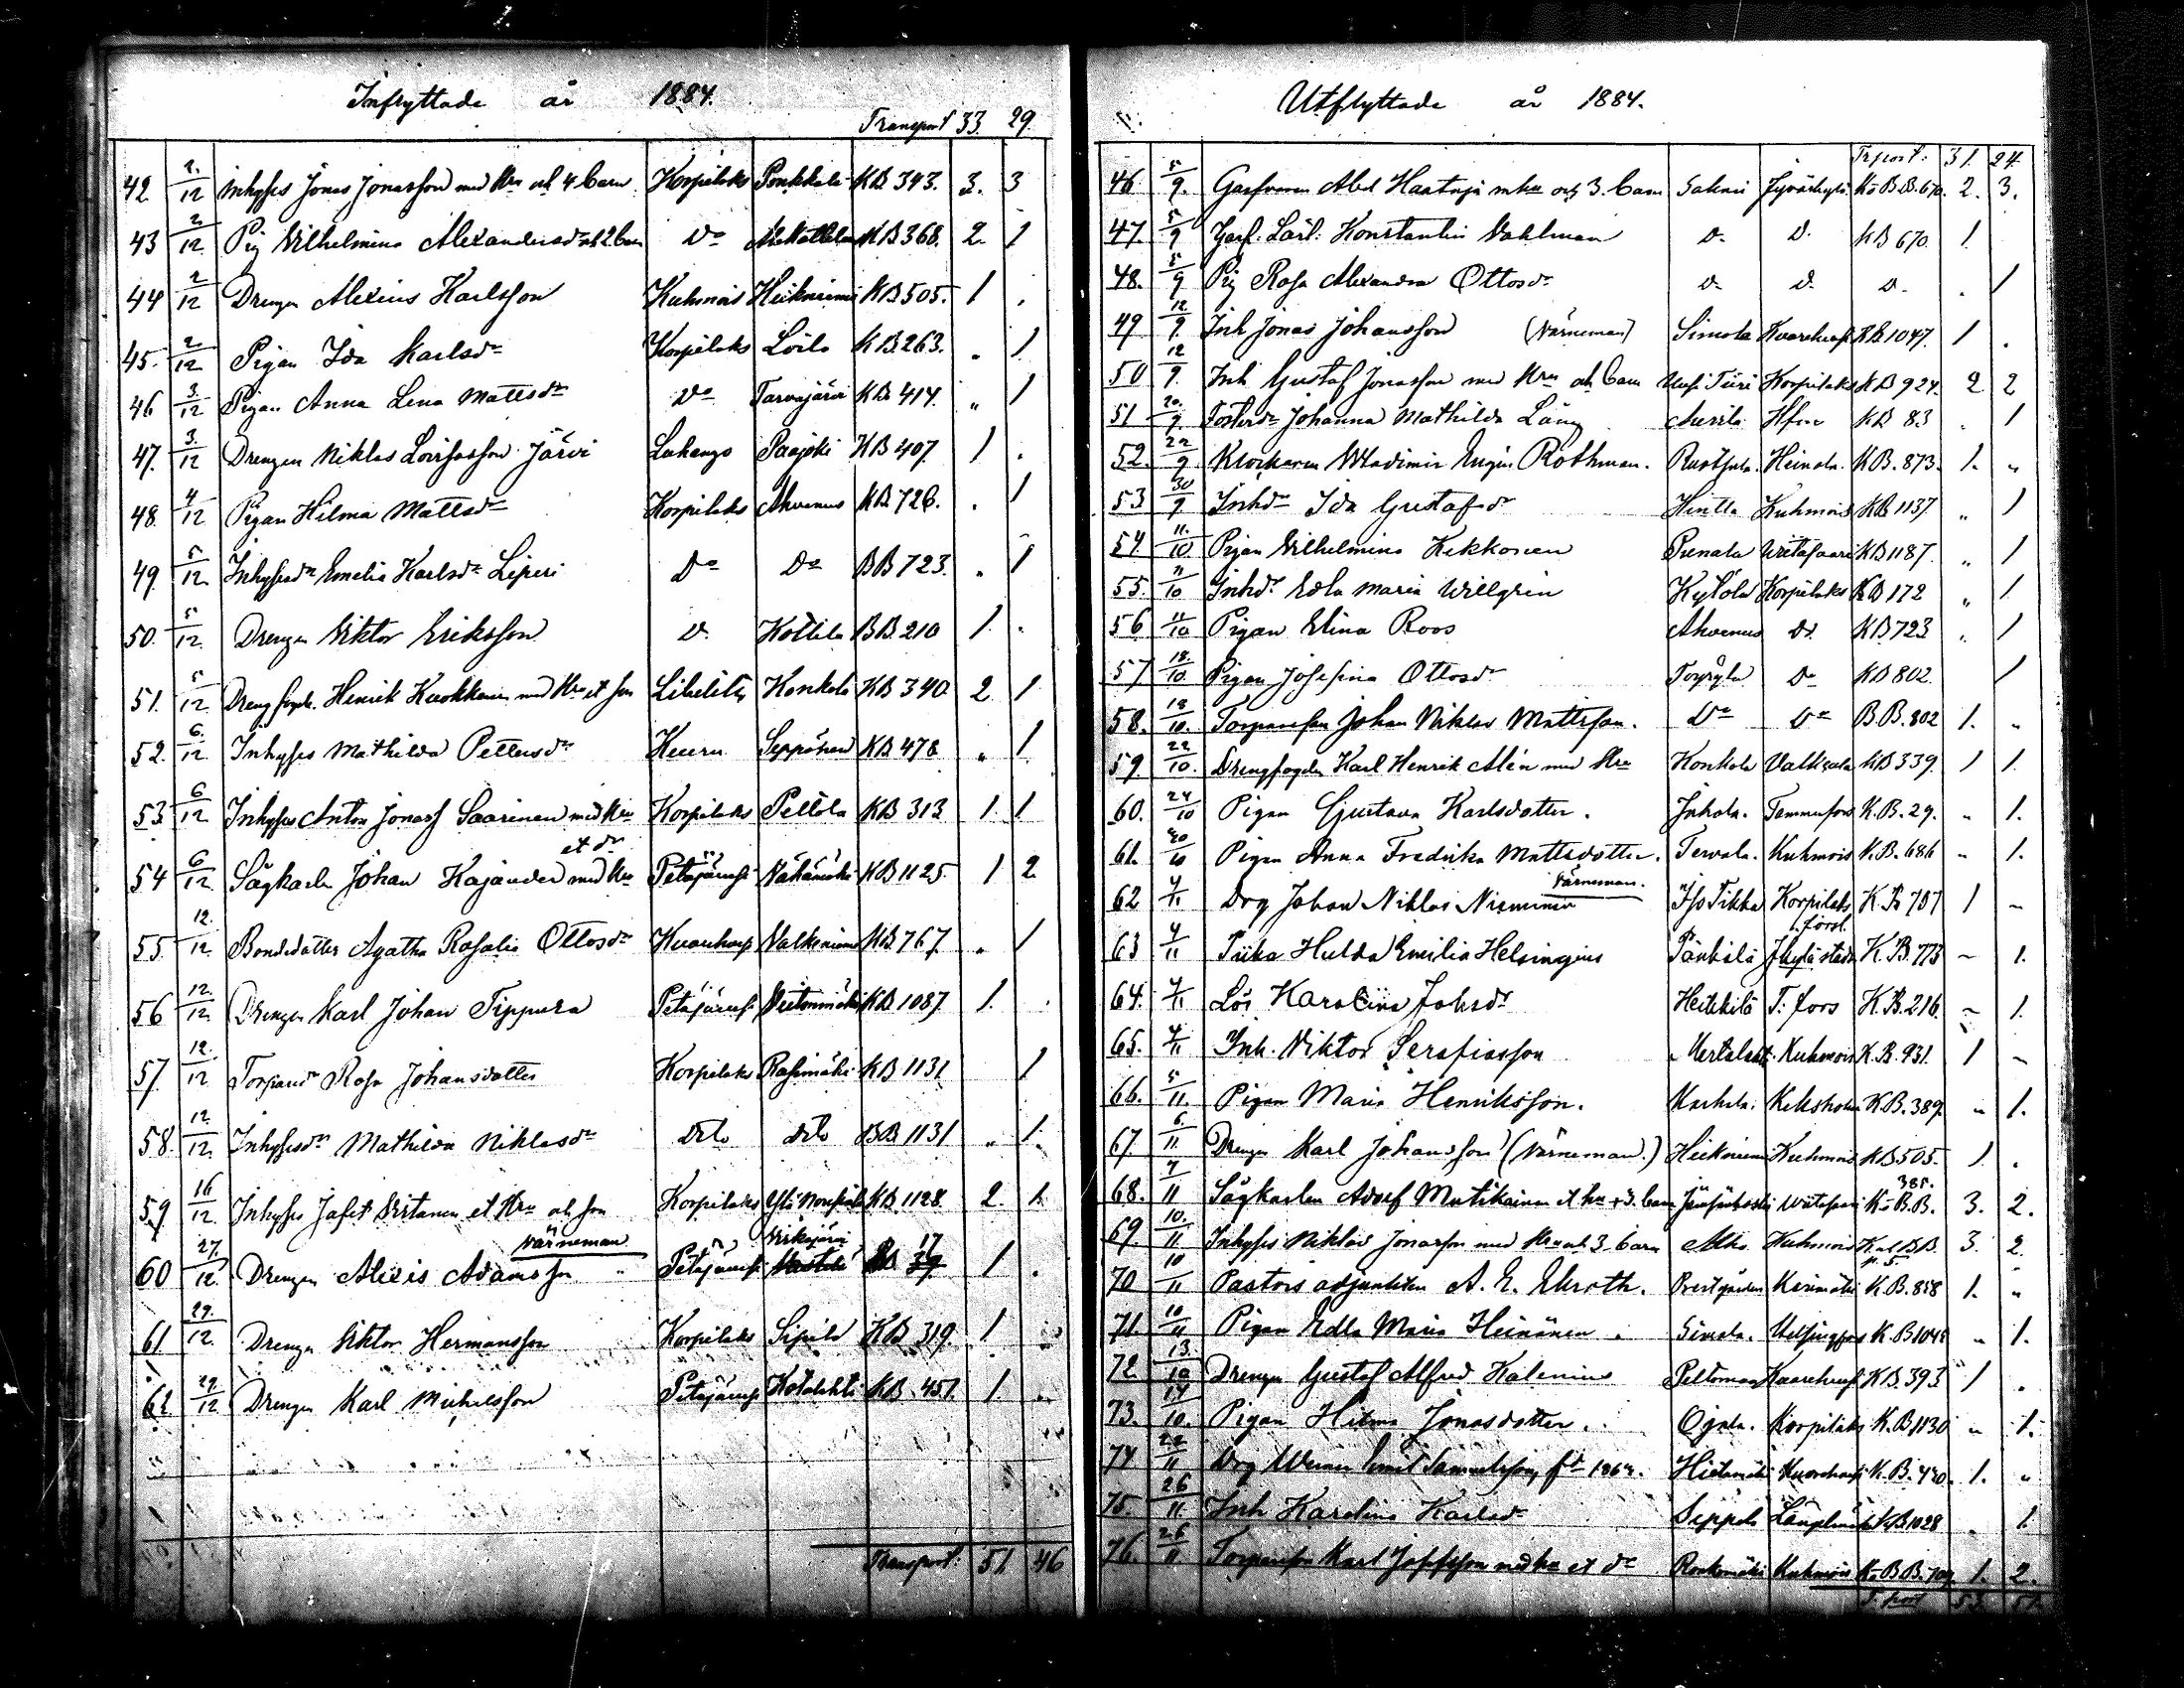 Inflyttade år 1884.
Transport 33. 29.
42 2/12 Inhyses Jonas Jonasson med Hru och 4 barn Korpilaks Ponkkala KB 343. 3. 3
43 2/12 Pig Wilhelmina Alexandersdr och 2 barn Do KB 368. 2. 1
44 2/12 Drengen Alexius Karlsson Kuhmois Heikniemi KB 505. 1 .
45. 2/12 Pigan Ida Karlsdr Korpilaks Loilo KB 263. „ 1
46 3/12 Pigan Anna Lena Mattsdr Do Tarvajärvi KB 414. „ 1
47. 3./12 Drengen Niklas Järvi Luhango Paajoki KB 407. 1 .
48. 4/12 Pigan Hilma Mattsdr Korpilaks Ahvenus KB 726. . 1
49 5/12. Inhysesdr Emelia Karlsdr Liperi Do Do BB 723. „ 1
50. 5/12. Drengen Viktor Eriksson D. Kottila BB 210 1. .
51. 5/12. Drengfogde. Henrik med Hru et son Libelits Konkola KB 340. 2 1
52. 6./12 Inhyses Mathilda Pettersdr Keuru Seppänen KB 478 „ 1
53 6/12 Inhyses Anton Jonass Saarinen med Hru Korpilaks Peltola KB 313 1. 1
et dr
54 6/12 Sågkarln Johan Kajander med Hru Petäjävesi KB 1125 1 2
55. 12./12. Bondedotter Agatha Rosalie Ottosdr Kuorehvesi Valkeniemi KB 767. „ 1
56 12./12. Drengen Karl Johan Tippura Petäjävesi KB 1087 1. .
57. 12./12 Torparedr Rosa Johansdotter Korpilaks Rasimäki KB 1131 1
58. 12./12. Inhysesdr Mathilda Niklasdr Dito Dito BB 1131 „ 1.
59 16/12. Inhyses Jafet Virtanen et Hru och son Korpilaks KB 1128. 2. 1.
Närneman
60 27./12. Drengen Alexis Adamsson Petäjävesi 17 1 .
61 29./12. Drengen Viktor Hermansson Korpilaks Sipilä KB 319. 1
62. 29/12 Drengen Karl Mickelsson Petäjävesi Kotalahti KB. 451. 1.
Transport: 51. 46
Utflyttade år 1884.
Trsport: 31. 24.
46. 5/9. Garfvaren Abel Haataja m hu och 3. barn Saksi Jyväskylä K=B.B.670. 2. 3.
47. 5/9 Garf. Lärl. Konstantin Dahlman D. D. KB 670. 1.
48. 5/9 Pig Rosa Alexandra Ottosdr D. D. D. . 1
49 12/9. Inh Jonas Johansson (Närneman) Simola Kuorehvesi KB 1047. 1 .
50 12/9. Inh Gustaf Jonasson med Hru och barn Uusi Tiiri Korpilaks KB 924. 2 2
51 20./9. Fosterdr Johanna Mathilda Lång Hfors KB 83 . 1
52. 22/9 Klockaren Wladimir Eugen Rothman. Rustjula. Heinola. KB. 873. 1. „
53 30/9 Inhdr Ida Gustafsdr Hintla Kuhmois KB 1137 „ 1
54. 11./10. Pigan Wilhelmina Kekkonen Punala Wiitasaari KB 1187. „ 1
55. 11/10 Inhdr Edla Maria Willgren Kylölä Korpilaks KB 172 „ 1
56 11/10 Pigan Elina Roos Ahvenus Do KB 723 „ 1
57 18./10. Pigan Josefina Ottosdr Do KB 802. 1
58. 18/10. Torparesson Johan Niklas Mattsson. Do Do B.B. 802 1. „
59. 22/10. Drengfogden Karl Henrik Alén med Hru Konkola Valkeala KB 339. 1 1.
60. 24/10 Pigan Gustava Karlsdotter. Juhola. Tammerfors K.B. 29. „ 1.
61. 30/10 Pigan Anna Fredrika Mattsdotter. Tervala. Kuhmois K.B. 686 „ 1.
Närneman.
62 4/11 Drg Johan Niklas Nieminen Iso Tikka Korpilaks K.B 707 1 –
förs.
63 4/11 Piika Hulda Emilia Helsingius J:kylä stads K.B. 773 – 1.
64. 4/11 Lös. Karolina Johsdr Heikkilä T:fors K.B. 216. – 1.
65. 4/11 Inh. Viktor Serafiasson Mertalahti Kuhmois K.B. 931. 1 –
66. 5/11. Pigan Maria Henriksson. Karhila. Keksholm KB. 389. „ 1.
67. 6./11 Drengen Karl Johansson (Närneman.) Heikniemi Kuhmois KB 505. 1. .
385.
68. 7/11 Sågkarlen Adolf Mutikainen et hu + 3. barn Wiitasaari K=B.B. 3. 2.
69. 10./11 Inhyses Niklas Jonasson med Hru och 3. barn Aho. Kuhmois K B.B. 3. 2.
p. 5.
70 10/11 Pastors adjunkten A. E. Ehroth. Prestgården Kerimäki K.B. 858 1. „
71. 10/11 Pigan Edla Maria Heinänen. Simola. Helsingfors K.B 1048 „ 1.
72. 13./10 Drengen Gustaf Alfred Kalenius Peltomaa Kuorehvesi KB. 393 1 .
73. 14/10. Pigan Hilma Jonasdotter. Ojala. Korpilaks K.B 1130 „ 1.
74 22/11 Drg Werner Emil Samuelsson fd 1864. Hietamäki Kuorehvesi K.B. 420. 1. „
75. 26/11. Inh Karolina Karlsdr Seppälä Längelmäki KB 1028 . 1.
76. 26/11. Torparesson Karl Josefsson med hu et dr Kuhmois K=B.B. 709 1. 2.
T. port 53. 51.